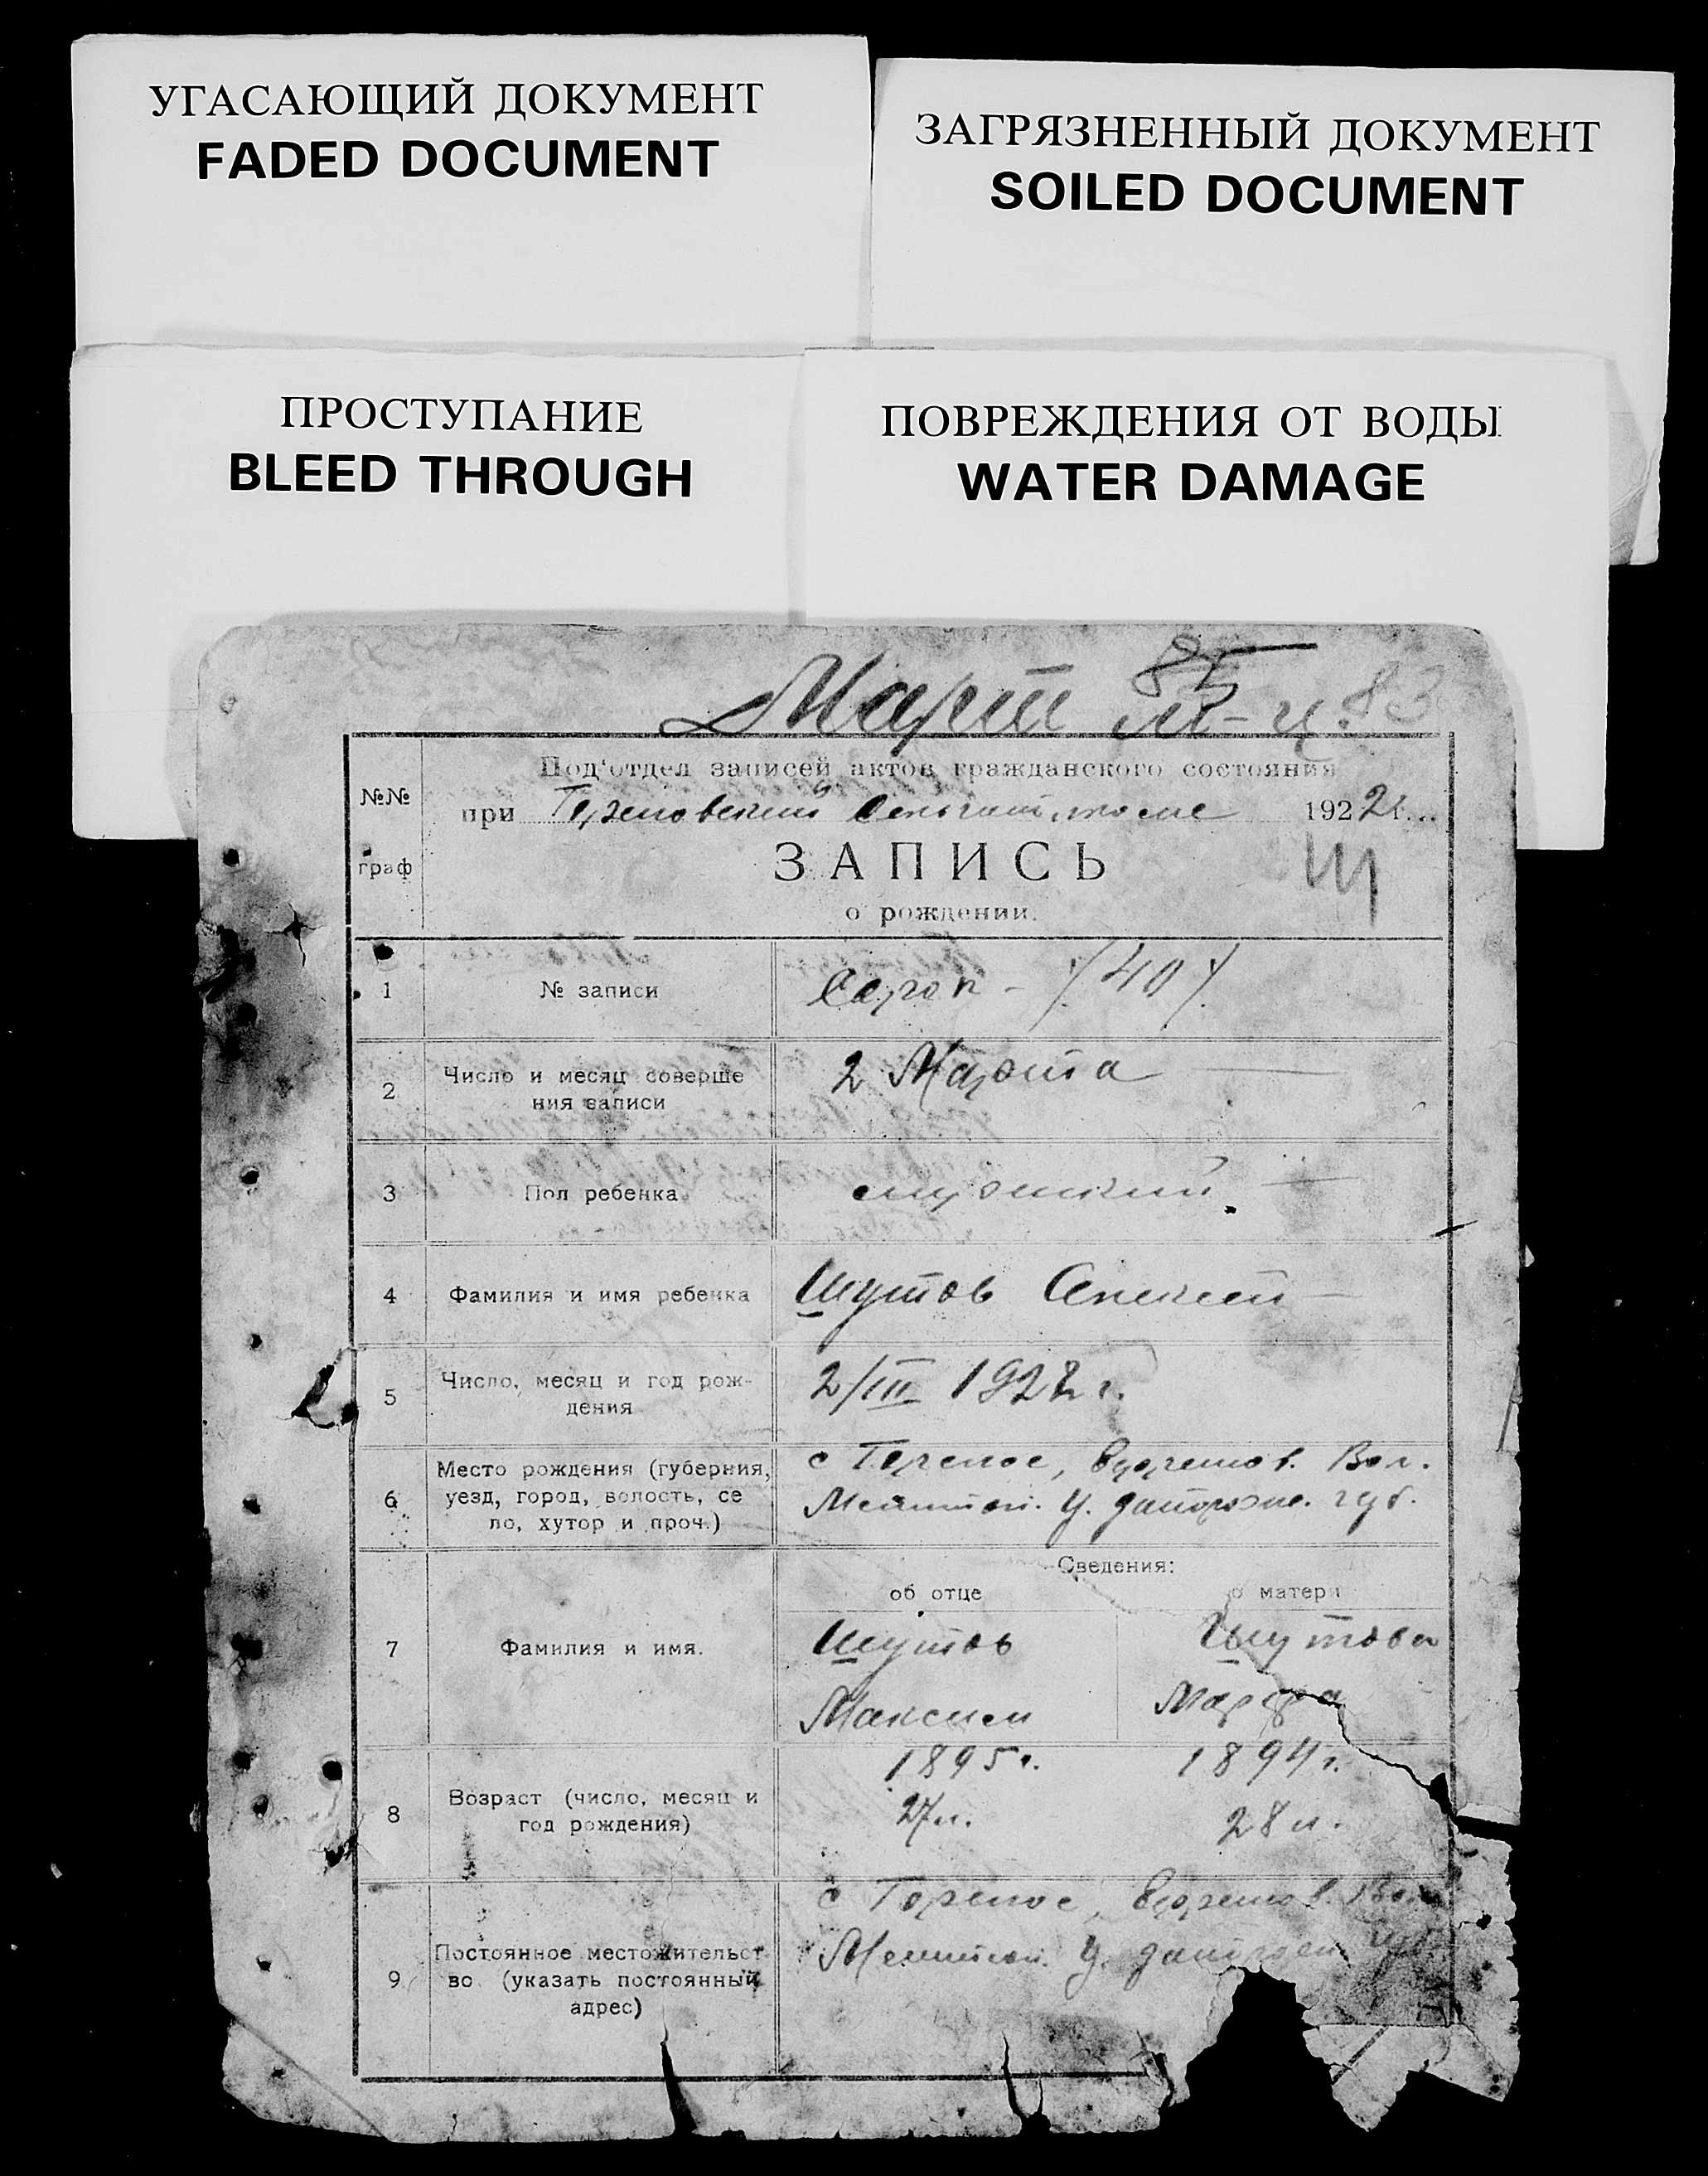 УГАСАЮЩИЙ ДОКУМЕНТ
FADED DOCUMENT
ЗАГРЯЗНЕННЫЙ ДОКУМЕНТ
SOILED DOCUMENT
ПРОСТУПАНИЕ
BLEED THROUGH
ПОВРЕЖДЕНИЯ ОТ ВОДЫ
WATER DAMAGE
85
Март м-ц. 83
№№
граф
Под'отдел записей актов гражданского состояния
при 1922 г...
ЗАПИСЬ
о рождении.
Ш
1 № записи Сорок - /40/
2 Число и месяц соверше
ния записи
2 Марта
3 Пол ребенка мужской
4 Фамилия и имя ребенка Шутов Алексей
5 Число, месяц и год рож-
дения
2/III 1922 г.
6 Место рождения (губерния,
уезд, город, волость, се
ло, хутор и проч.)
с Терпение, Вол.
Мелитоп. У. Запорож. губ.
Сведения:
об отце о матери
7 Фамилия и имя. Шутов Шутова
Максим Марфа
8 Возраст (число, месяц и
год рождения)
1895 г. 1894 г.
27 л. 28 л.
9 Постоянное местожительст
во (указать постоянный
адрес)
с Вол
Мелитоп. У.